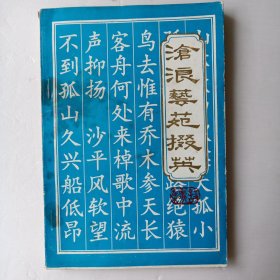 滄浪藝苑掇英
山
孤小
路绝猿
鸟去惟有乔木参天长
客舟何处来棹歌中流
声抑扬 沙平风软望
不到孤山久兴船低昂